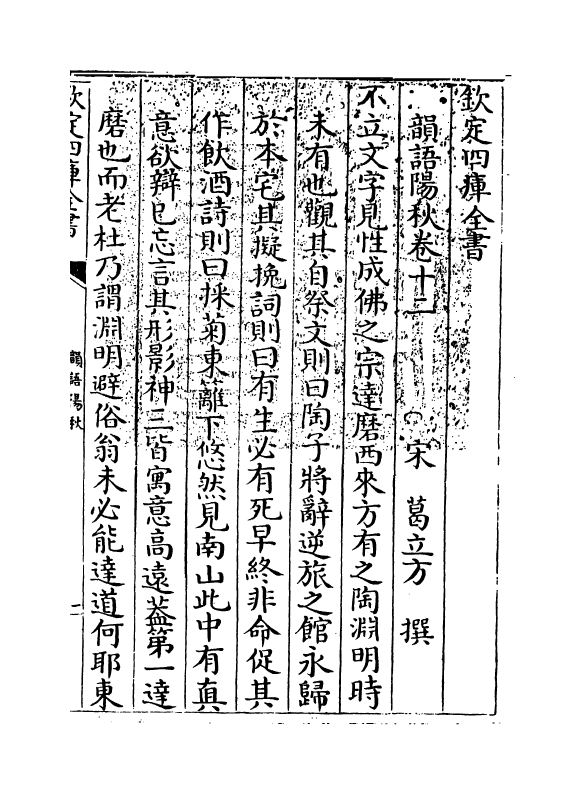 欽定四庫全書
韻語陽秋卷十二
宋 葛立方 撰
不立文字見性成佛之宗達磨西來方有之陶淵明時
未有也觀其自祭文則曰陶子將辭逆旅之館永歸
於本宅其擬挽詞則曰有生必有死早終非命促其
作飲酒詩則曰採菊東籬下悠然見南山此中有真
意欲辯已忘言其形影神三皆寓意高遠葢第一達
磨也而老杜乃謂淵明避俗翁未必能達道何耶東
欽定四庫全書
韻語陽秋
一